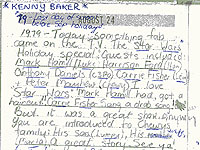 *KENNY BAKER*
79
AUGUST 24
1979 - Today. Something fab
came on the T.V. The Star Wars
Holiday special! Guests included
Mark Hamill (Luke) Harrison Ford (Han)
Anthony Daniels (C3PO) Carrie Fisher (Leia)
Peter Mayhew (Chewy) I love
Star Wars. Mark Hamill had, got a
haircut. Carrie Fisher Sang a drab song.
But it was a great show. Anyway
You are introduced to Chewy's
family: His son (Lumpy), His
(Maria). A great Story. See ya!